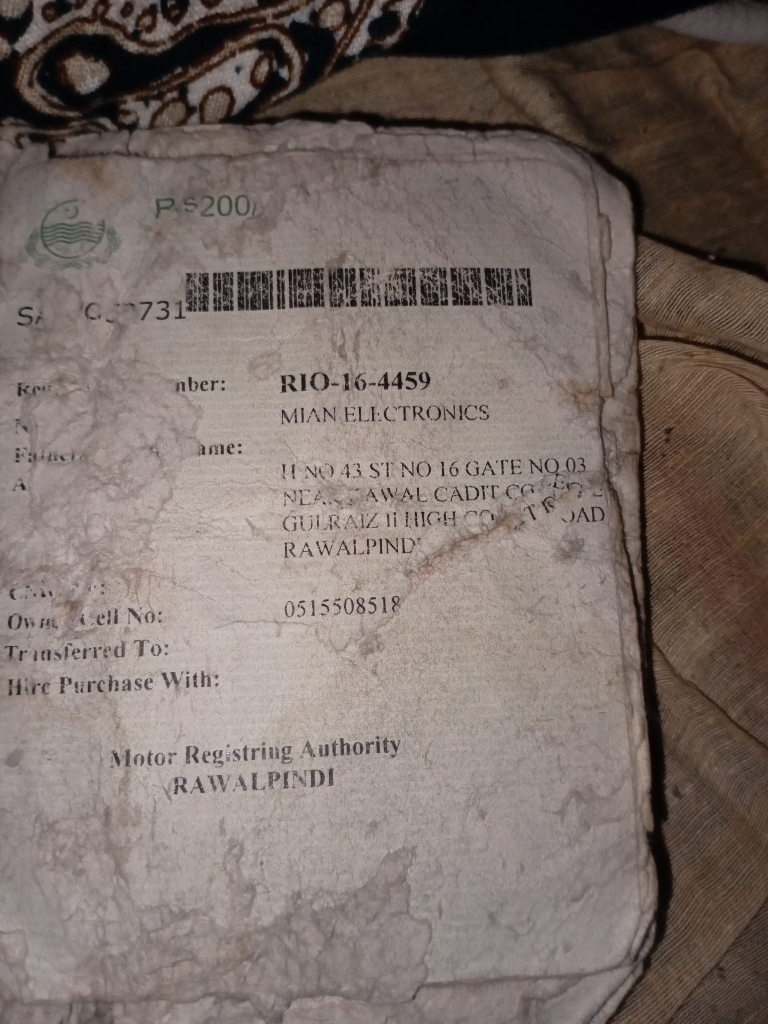 RS200/
731
Number:
RIO-16-4459
MIAN ELECTRONICS
Name:
H NO 43 ST NO 16 GATE NO 03
CADIT
GULRAIZ II HIGH ROAD
RAWALPINDI
Owner Cell No: 0515508518
Transferred To:
Hire Purchase With:
Motor Registring Authority
RAWALPINDI